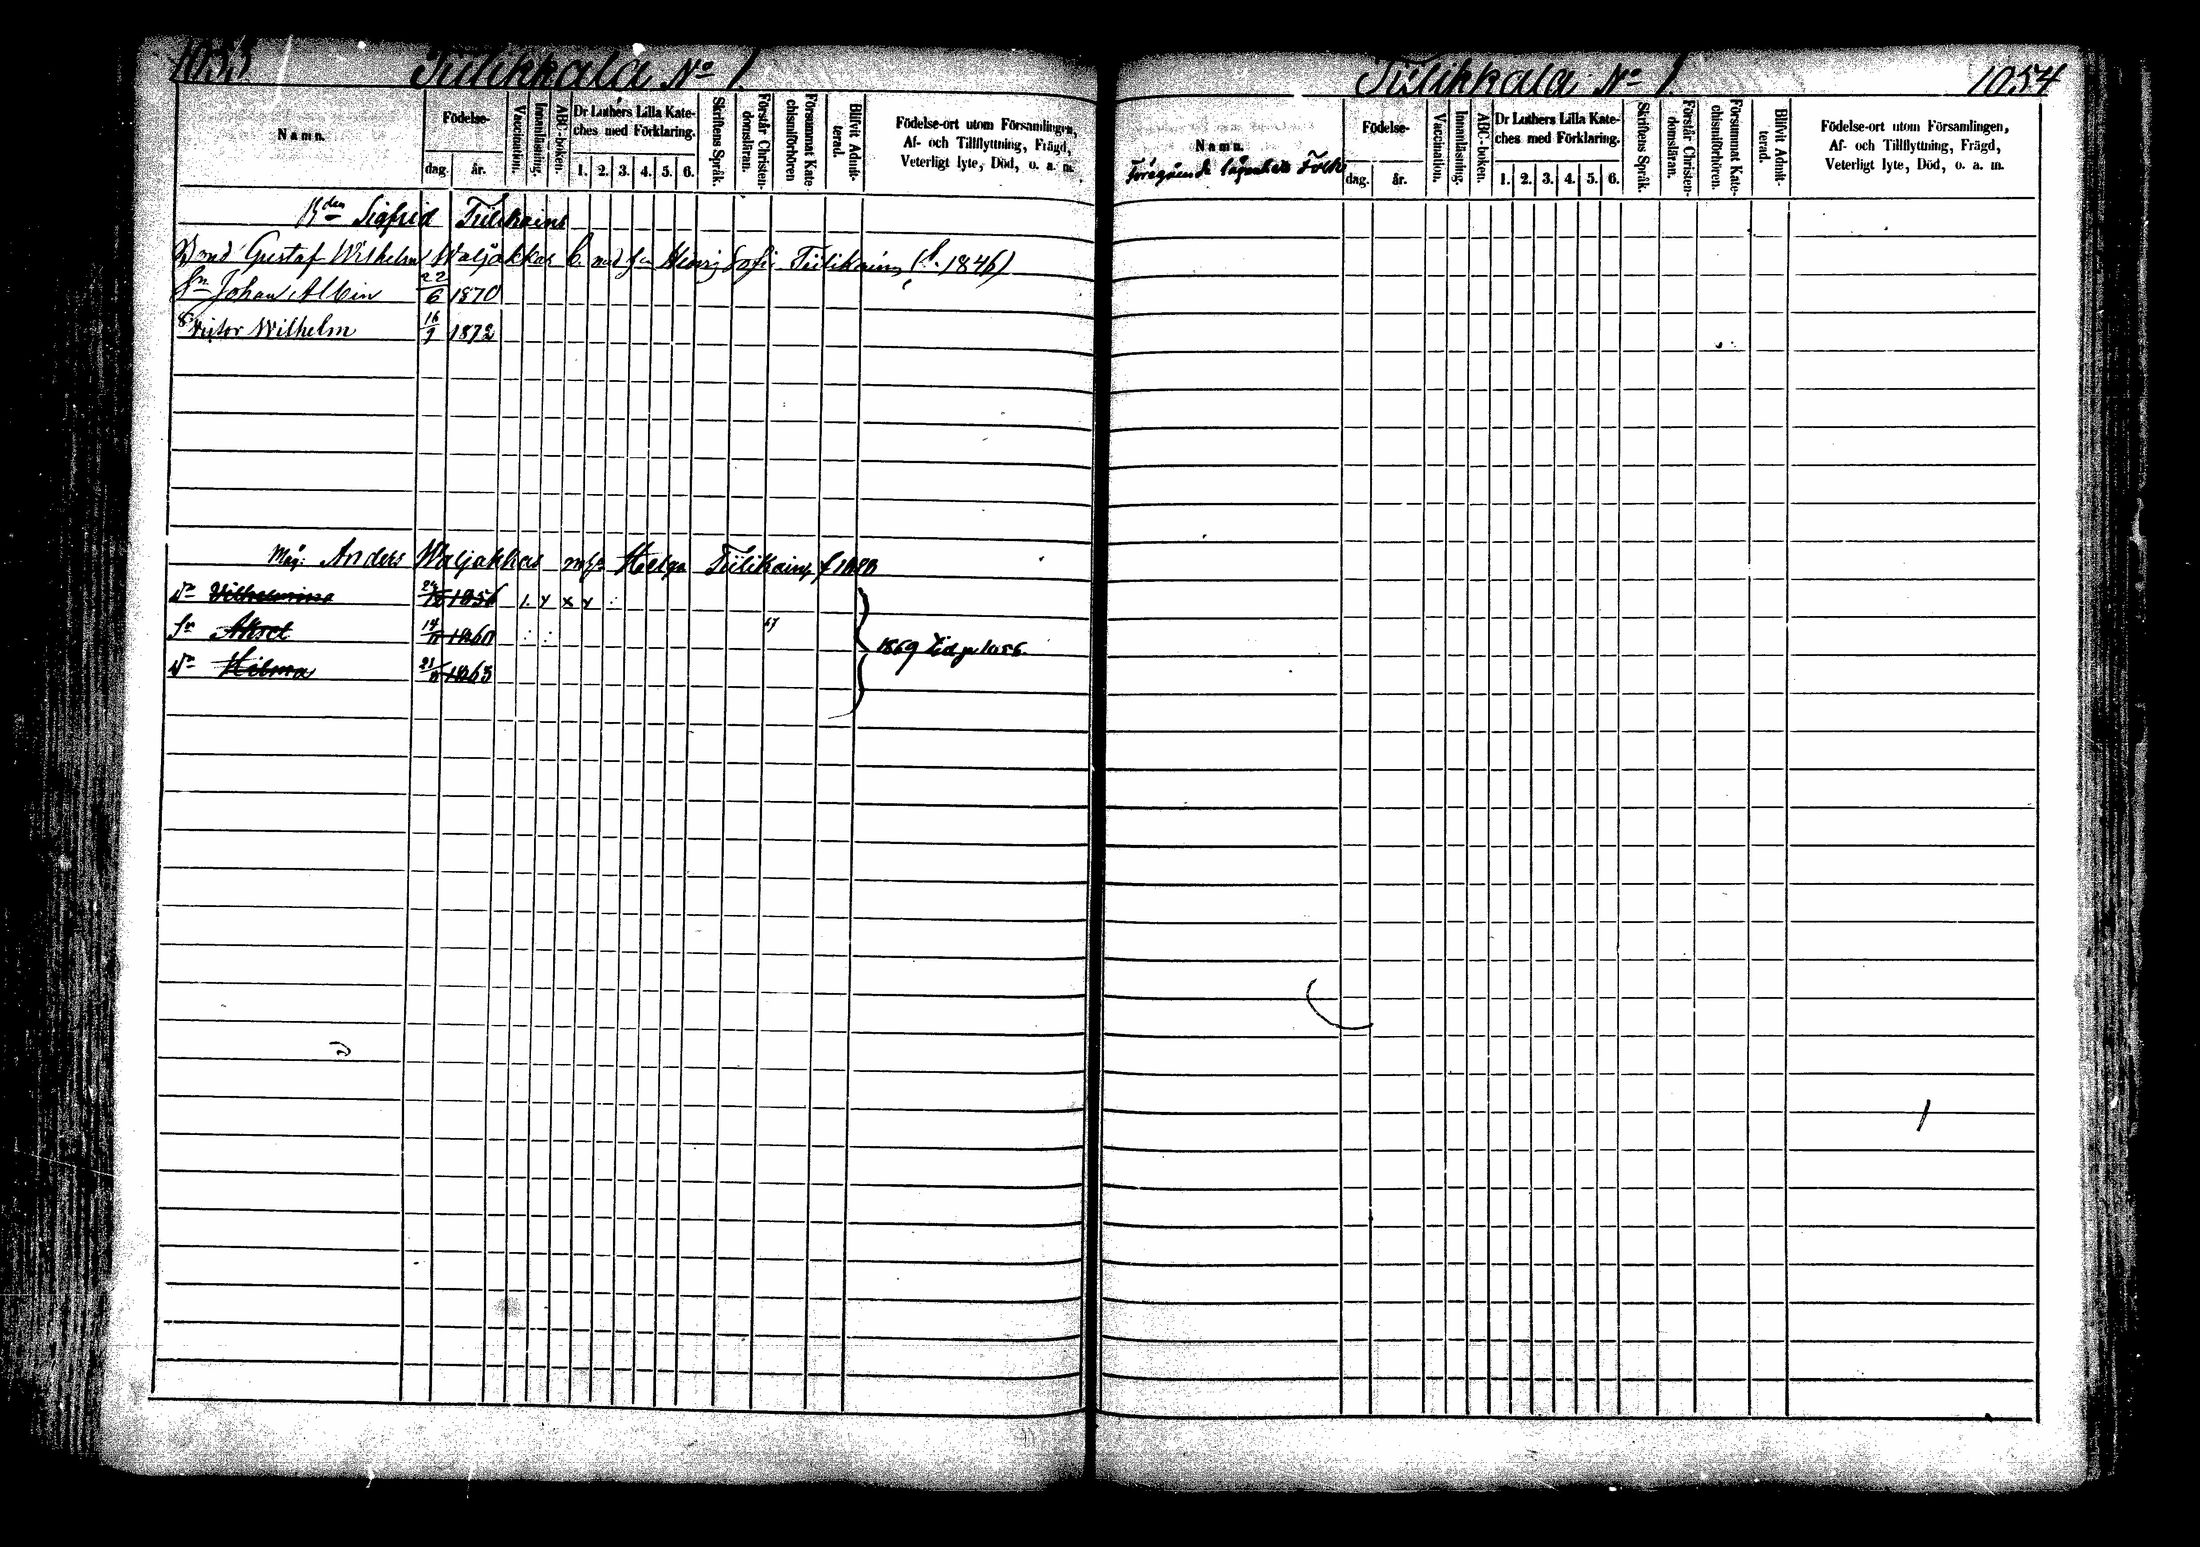 1053 Tiilikkala No 1.
Namn.
Födelse-
dag. år.
Vaccination.
Innanläsning.
ABC-boken.
Dr Luthers Lilla Kate-
ches med Förklaring.
1. 2. 3. 4. 5. 6.
Skriftens Språk.
Förstår Christen-
domsläran.
Försummat Kate
chismiförhören
Blifvit Admit-
terad.
Födelse-ort utom Församlingen,
Af- och Tillflyttning, Frägd,
Veterligt lyte, Död, o. a. m.
Bden Sigfrid Tiilikains
Gustaf Wilhelm Waljakkas Sofia Tiilikain (f. 1846)
Sn Johan Albin 22/6 1870
Victor Wilhelm 16/9 1872
Måg: Anders Waljakkas Helga Tiilikain
Dr Vilhelmina 1856 1. x x x
Sn Aksel 1860 67
Dr Hilma 1863
1869 p 1056.
Tiilikkala No 1. 1054
Namn.
Föregående lägenhets Folk
Födelse-
dag. år.
Vaccination.
Innanläsning.
ABC-boken.
Dr Luthers Lilla Kate-
ches med Förklaring.
1. 2. 3. 4. 5. 6.
Skriftens Språk.
Förstår Christen-
domsläran.
Försummat Kate-
chismiförhören.
Blifvit Admit-
terad.
Födelse-ort utom Församlingen,
Af- och Tillflyttning, Frägd,
Veterligt lyte, Död, o. a. m.